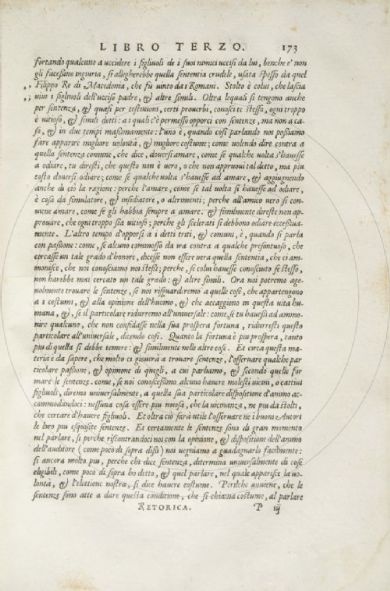 LIBRO TERZO. 173
fortando qualcuno a uccidere i figliuoli de i suoi nimici uccisi da lui, benche e' non
gli facessino ingiuria, si allegherebbe quella sententia crudele, usata spesso da quel
Filippo Re di Macedonia, che fu vinto da i Romani. Stolto è colui, che lascia
vivi i figliuoli dell'ucciso padre, & altre simili. Oltra lequali si tengono anche
per sententie, & quasi per testimoni, certi proverbi, conosci te stesso, ogni troppo
è vitioso, & simili detti: a i quali c'è permesso opporci con sententie, ma non a ca-
so, & in due tempi massimamente: l'uno è, quando così parlando noi possiamo
fare apparire migliore volontà, & migliore costume: come volendo dire contra a
quella sententia commune, che dice, doversi amare, come se qualche volta s'havesse
a odiare, tu diresti, che questo non è vero, e che non approvi tal detto, ma piu
tosto doversi odiare, come se qualche volta s'havesse ad amare, & aggiugnendo
anche di ciò la ragione: perche l'amare, come se tal volta si havesse ad odiare,
è cosa da simulatore, & insidiatore, o altrimenti; perche all'amico vero si con-
viene amare, come se gli habbia sempre a amare. & similmente direste non ap-
provare, che ogni troppo sia vitioso; perche gli scelerati si debbono odiare eccessiva-
mente. L'altro tempo d'opporsi a i detti trati, & comuni, è, quando si parla
con passione: come, se alcuno commosso da ira contra a qualche presuntuoso, che
cercasse un tale grado d'honore, dicesse non essere vera quella sententia, che ci am-
monisce, che noi conosciamo noi stessi; perche, se colui havesse conosciuto se stesso,
non harebbe mai cercato un tale grado: & altre simili. Ora noi potremo age-
volmente trovare le sententie, se noi risguarderemo a quelle cose, che appartengono
a i costumi, & alla opinione dell'huomo, & che accaggiono in questa vita hu-
mana, & , se il particolare ridurremo all'universale: come, se tu havessi ad ammo-
nire qualcuno, che non confidasse nella sua prospera fortuna, ridurresti questo
particolare all'universale, dicendo così. Quanto la fortuna è piu prospera, tanto
piu di quella si debbe temere: & similmente nelle altre cose. Et circa questa ma-
teria è da sapere, che molto ci gioverà a trovare sententie, l'osservare qualche par-
ticolare passione, & opinione di quegli, a cui parliamo, & secondo quella for
mare le sententie. come, se noi conoscessimo alcuno havere molesti vicini, o cattivi
figliuoli, diremo universalmente, a quella sua particolare dispositione d'animo ac-
commodandoci: nessuna cosa essere piu noiosa, che la vicinanza, ne piu da stolti,
che cercare d'havere figliuoli. Et oltra ciò sarà utile l'osservare ne i buoni Autori
le loro piu esquisite sententie. Et certamente le sententie sono di gran momento
nel parlare, sì perche riscontrandoci noi con la opinione, & dispositione dell'animo
dell'auditore (come poco di sopra dissi) noi vegniamo a guadagnarlo facilmente:
sì ancora molto piu, perche chi dice sententia, determina universalmente di cose
eligibili, come poco di sopra ho detto, & quel parlare, nel quale apparisce la vo-
lontà, & l'elettione nostra, si dice havere costume. Perilche avviene, che le
sententie sono atte a dare questa conditione, che si chiama costume, al parlare
RETORICA. P iij